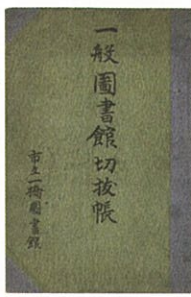 一般圖書館切抜帳
市立一橋圖書館